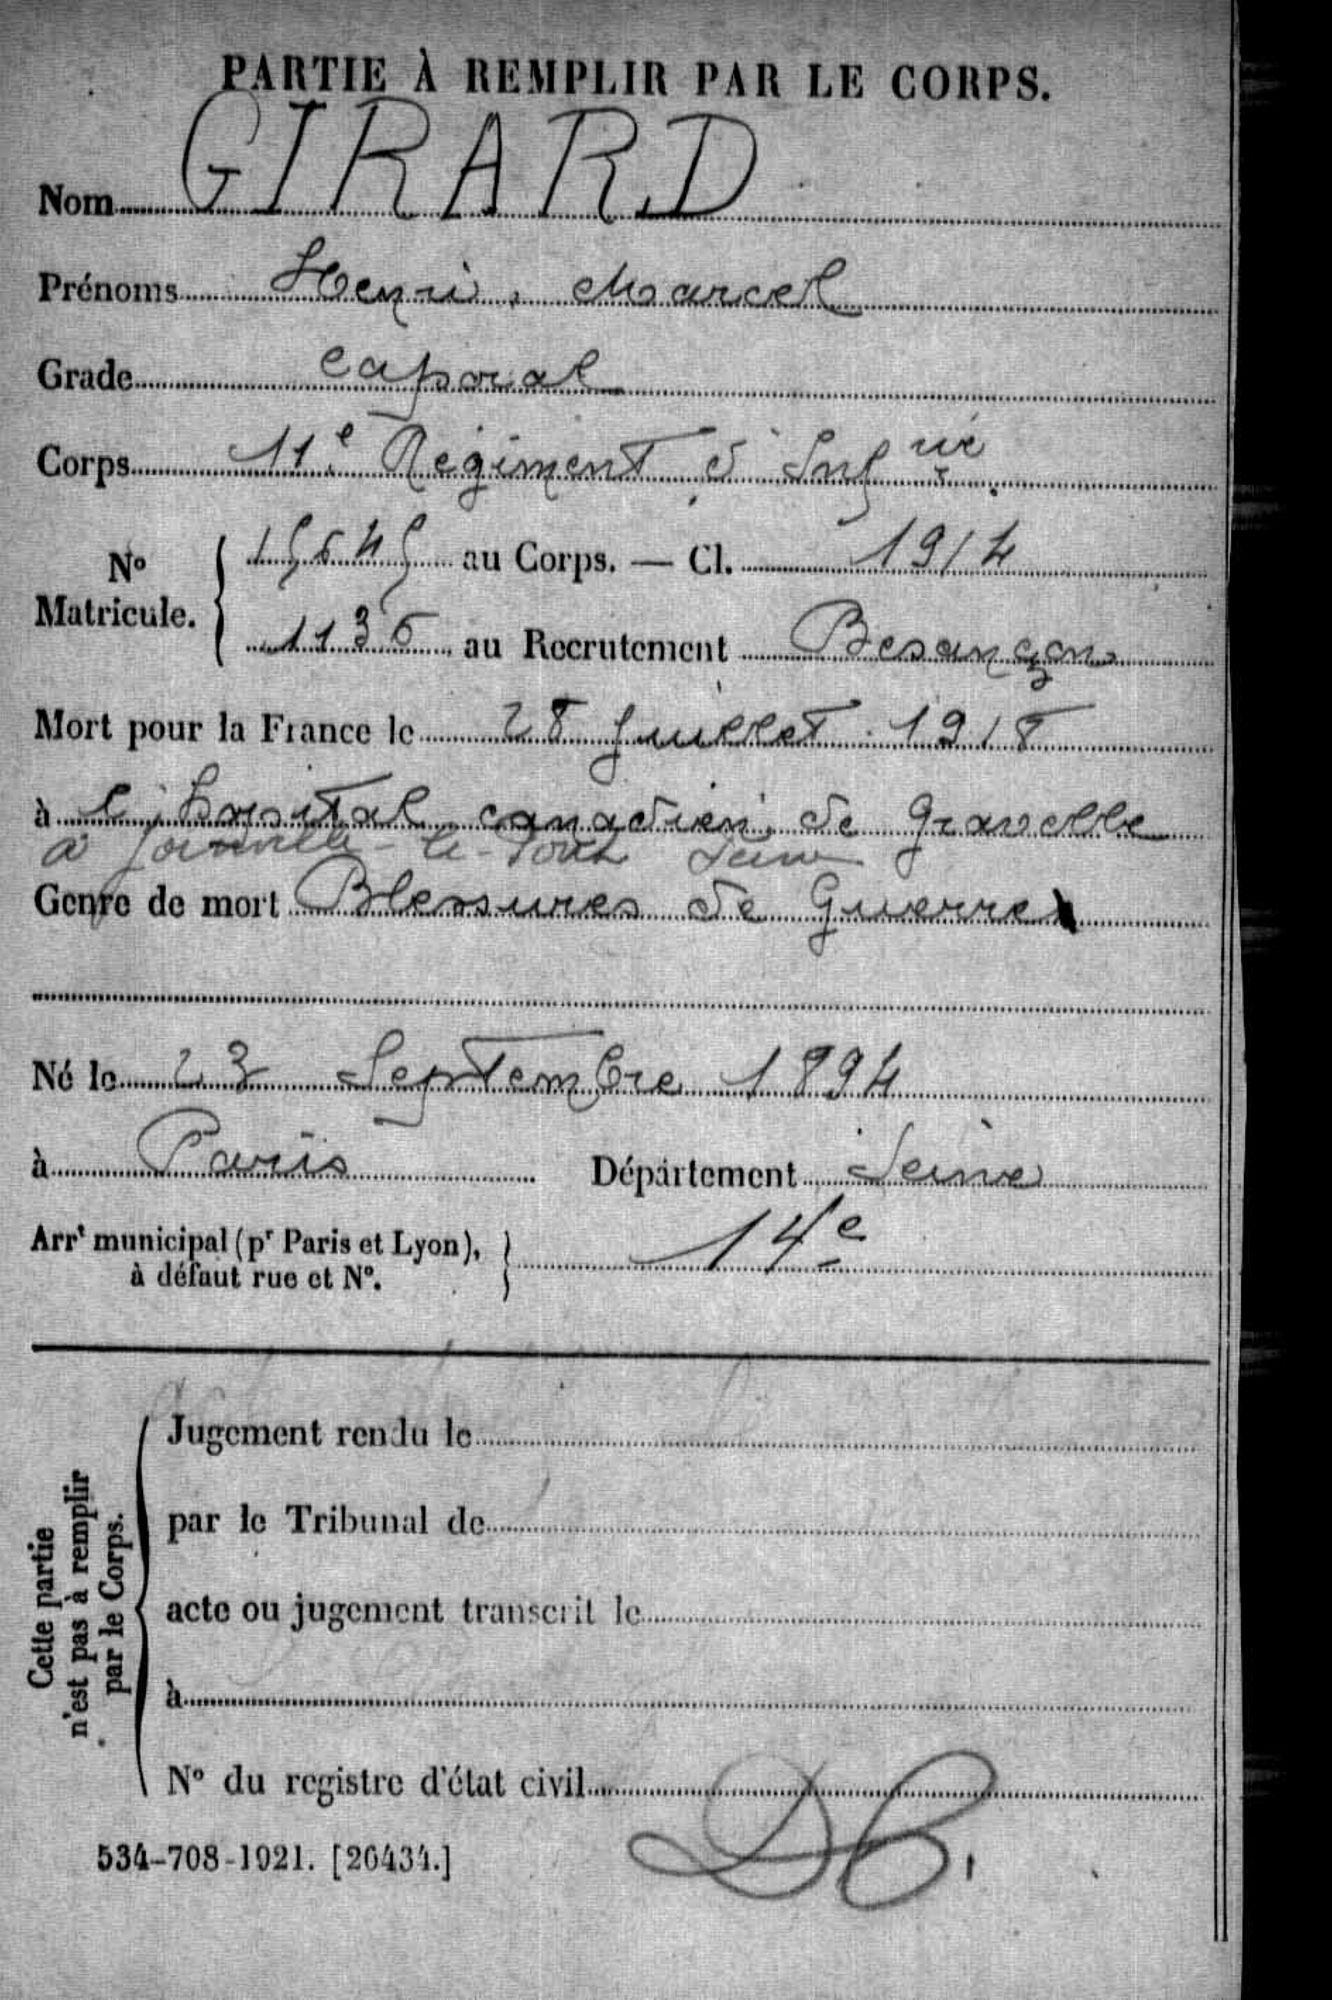 PARTIE À REMPLIR PAR LE CORPS.
Nom GIRARD
Prénoms Henri, Marcel
Grade Caporal
Corps 11e Régiment d'Infrie
No Matricule. { 15645 au Corps. — Cl. 1914
1136 au Recrutement Besançon
Mort pour la France le 28 Juillet 1918
à l'hopital canadien de Gravelle
à Joinville-le-Pont Seine
Genre de mort Blessures de Guerre
Né le 23 Septembre 1894
à Paris Département Seine
Arrt municipal (pr Paris et Lyon), à défaut rue et No. } 14e
Cette partie n'est pas à remplir par le Corps.
Jugement rendu le
par le Tribunal de
acte ou jugement transcrit le
à
No du registre d'état civil
534-708-1921. [26434.]